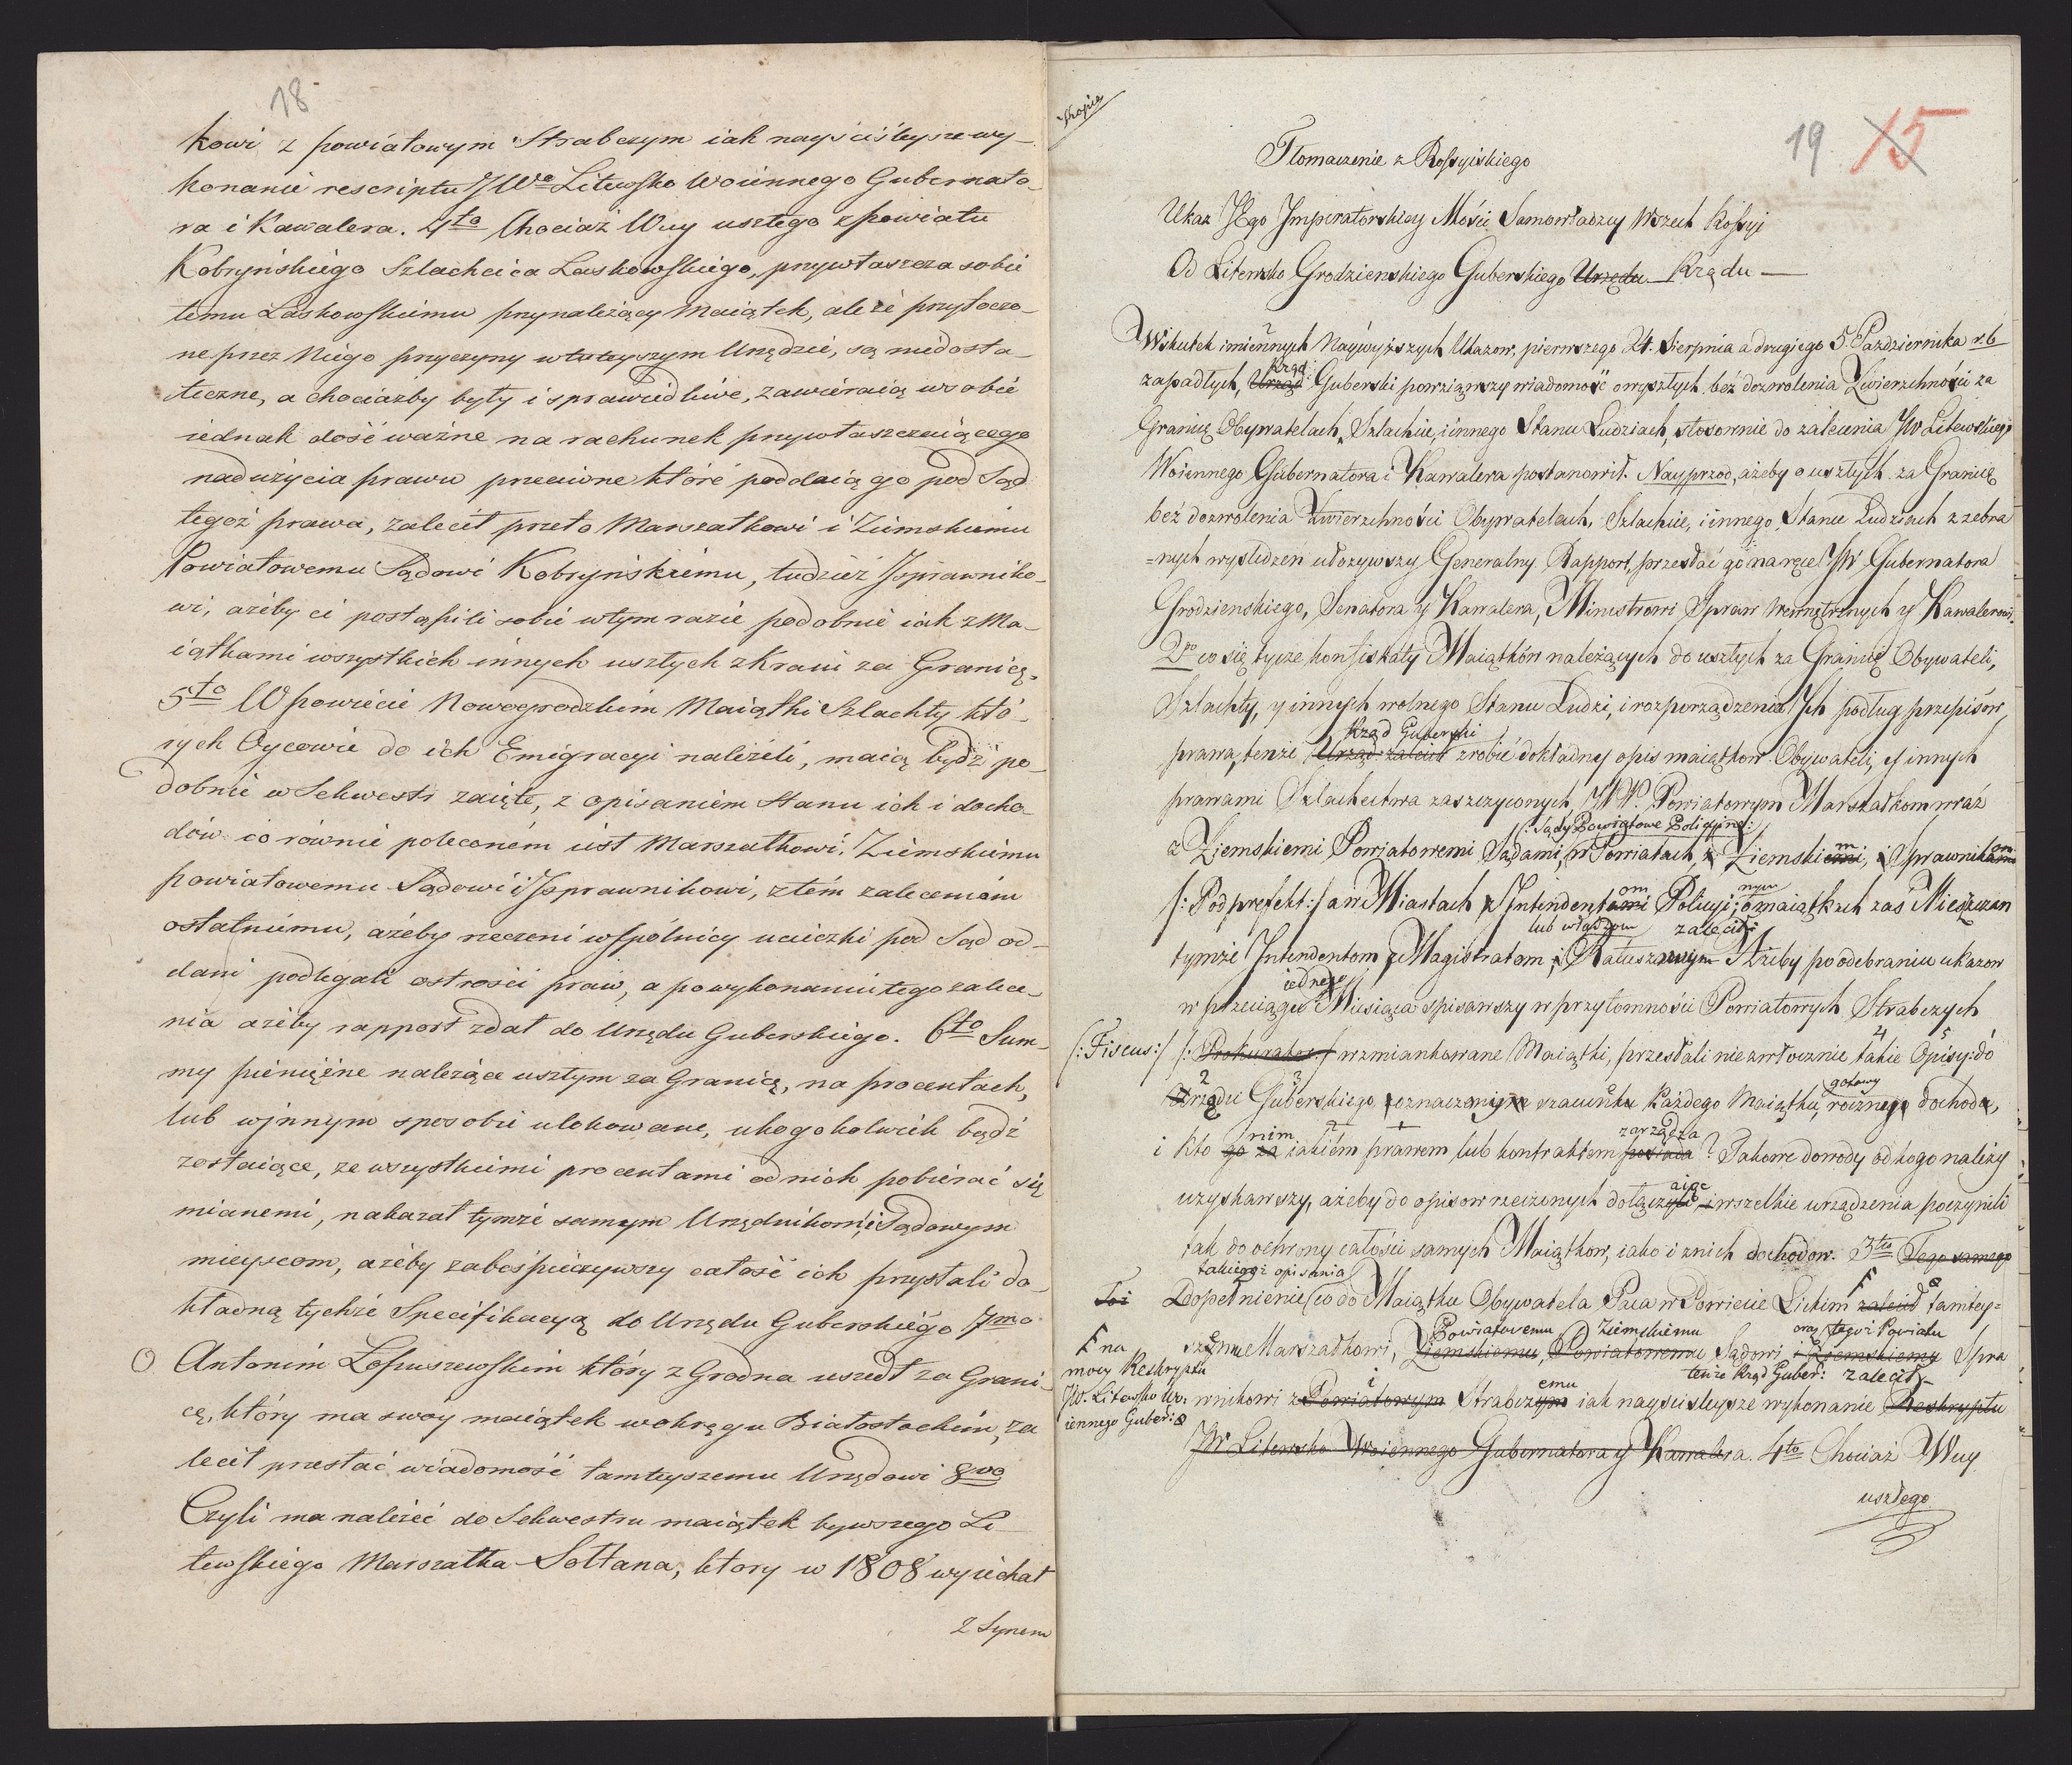 18
kowi z powiatowym Strabczym iak nayściśleysze wy-
konanie rescriptu JWo Litewsko Woiennego Gubernato-
ra i Kawalera. 4to Chociaż Wuy uszłego z powiatu
Kobryńskiego Szlachcica Laskowskiego, przywłaszcza sobie
temu Laskowskiemu przynależący Maiątek, ale że przytoczo-
ne przez Niego przyczyny w tuteyszym Urzędzie, są niedosta-
teczne, a chociażby były i sprawiedliwe, zawieraią w sobie
iednak dość ważne na rachunek przywłaszczaiącego
nadużycia prawu przeciwne które poddaią go pod Sąd
tegoż prawa, zalecił przeto Marszałkowi i Ziemskiemu
Powiatowemu Sądowi Kobryńskiemu, tudzież Isprawniko-
wi, ażeby ci postąpili sobie w tym razie podobnie iak z Ma-
iątkami wszystkich innych uszłych z Kraiu za Granicę.
5to W powiecie Nowogrodzkim Maiątki Szlachty któ-
rych Oycowie do ich Emigracyi należeli, maią bydź po-
dobnie w Sekwestr zaięte, z opisaniem Stanu ich i docho-
dów co równie poleconém iest Marszałkowi, Ziemskiemu
powiatowemu Sądowi i Isprawnikowi, z tém zaleceniem
ostatniemu, ażeby rzeczeni wspólnicy ucieczki pod Sąd od-
dani podlegali ostrości praw, a po wykonaniu tego zalece-
nia ażeby rapport zdał do Urzędu Guberskiego. 6to Sum-
my pieniężne należące uszłym za Granicę, na procentach,
lub w jnnym sposobie ulokowane, u kogokolwiek bądź
zostaiące, ze wszystkiemi procentami od nich pobierać się
mianemi, nakazał tymże samym Urzędnikom, i Sądowym
mieyscom, ażeby zabeśpieczywszy całość ich przysłali do-
kładną tychże Specifikacyą do Urzędu Guberskiego 7mo
O Antonim Łopuszewskim który z Grodna uszedł za Grani-
cę, który ma swóy maiątek w okręgu Białostockim, za
lecił przesłać wiadomość tamteyszemu Urzędowi 8vo
Czyli ma należeć do Sekwestru maiątek bywszego Li-
tewskiego Marszałka Sołtana, ktory w 1808 wyiechał
z Synem
Kopia
19 15
Tłomaczenie z Rossyiskiego
Ukaz JEgo Jmperatorskiey Mości Samowładzcy Wszech Rossyi
Od Litewsko Grodzienskiego Guberskiego Urzędu Rządu —
Wskutek imiennych Naywyższych Ukazow, pierwszego 24. Sierpnia a drugiego 5. Pazdziernika r. b
Rząd
zapadłych, Urząd Guberski powziąwszy wiadomość o wyszłych bez dozwolenia Zwierzchności za
Granicę Obywatelach, Szlachcie, i innego Stanu Ludziach, stosownie do zalecenia JW Litewskiego
Woiennego Gubernatora i Kawalera postanowił. Nayprzod, ażeby o uszłych za Granicę
bez dozwolenia Zwierzchności Obywatelach, Szlachcie, i innego Stanu Ludziach z zebra
=nych wysledzeń ułożywszy Generalny Rapport, przesłać go na ręce JW Gubernatora
Grodzienskiego, Senatora y Kawalera, Ministrowi Spraw Wewnętrznych y Kawalerowi.
2do co się tycze konfiskaty Maiątków należących do uszłych za Granicę Obywateli,
Szlachty, y innych wolnego Stanu Ludzi, i rozporządzenia Jch podług przepisów
Rząd Guberski
prawa, tenże Urząd zalecił zrobić dokładny opis maiątkow Obywateli, y innych
prawami Szlachectwa zaszczyconych JWW. Powiatowym Marszałkom wraz
/: Sądy Powiatowe Policyjne :/
z Ziemskiemi Powiatowemi Sądami, w Powiatach, z Ziemskiemi, i Sprawnikami
m om
/: Podprefekt :/ a w Miastach z Intendentami Policyi; o maiątkach zaś Mieszczan
om nym
lub władzom zalecił
tymże Intendentom, Magistratom, i Ratuszowym Ażeby po odebraniu ukazow
iednego
w przeciągu Miesiąca opisawszy w przytomności Powiatowych Strabczych
/: Fiscus :/ /: Prokurator :/ wzmiankowane Maiątki, przesłali niezwłocznie takie Opisy: do
4 5
2 3 gotowy
Urzędu Guberskiego, oznaczeniem szacunku każdego Maiątku, rocznego dochodu,
nim zarządza
i kto go za iakiém prawem lub kontraktem posiada? Takowe dowody od kogo należy
aiąc
uzyskawszy, ażeby do opisow rzeczonych dołączyli, i wszelkie urządzenia poczynili
tak do ochrony całości samych Maiątkow, iako i z nich dochodow. 3tio Tego samego
takiegoż opisania
Dopełnienie co do Maiątku Obywatela Paca w Powiecie Lidzkim zalecił tamtey=
Powiatowemu Ziemskiemu oraz tegoż Powiatu
szemu Marszałkowi, Ziemskiemu, Powiatowemu Sądowi i Ziemskiemu Spra
F na
mocy Reskryptu
JW. Litewsko Wo-
iennego Guber:
i emu tenże Rząd Guber: zalecił
wnikowi z Powiatowym Strabczym iak nayscisleysze wykonanie Reskryptu
JW Litewsko Woiennego Gubernatora y Kawalera. 4to Chociaż Wuy
uszłego